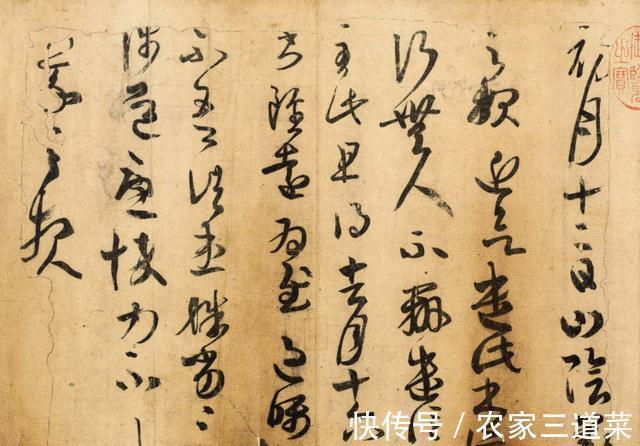 初月十二日山陰
之報近欲遣此書
行無人不辦遣信
至此且得去月十六
書雖遠為慰過囑
不吾諸患殊劣殊
涉道憂悴力不
羲之報
快传号 / 农家三道菜